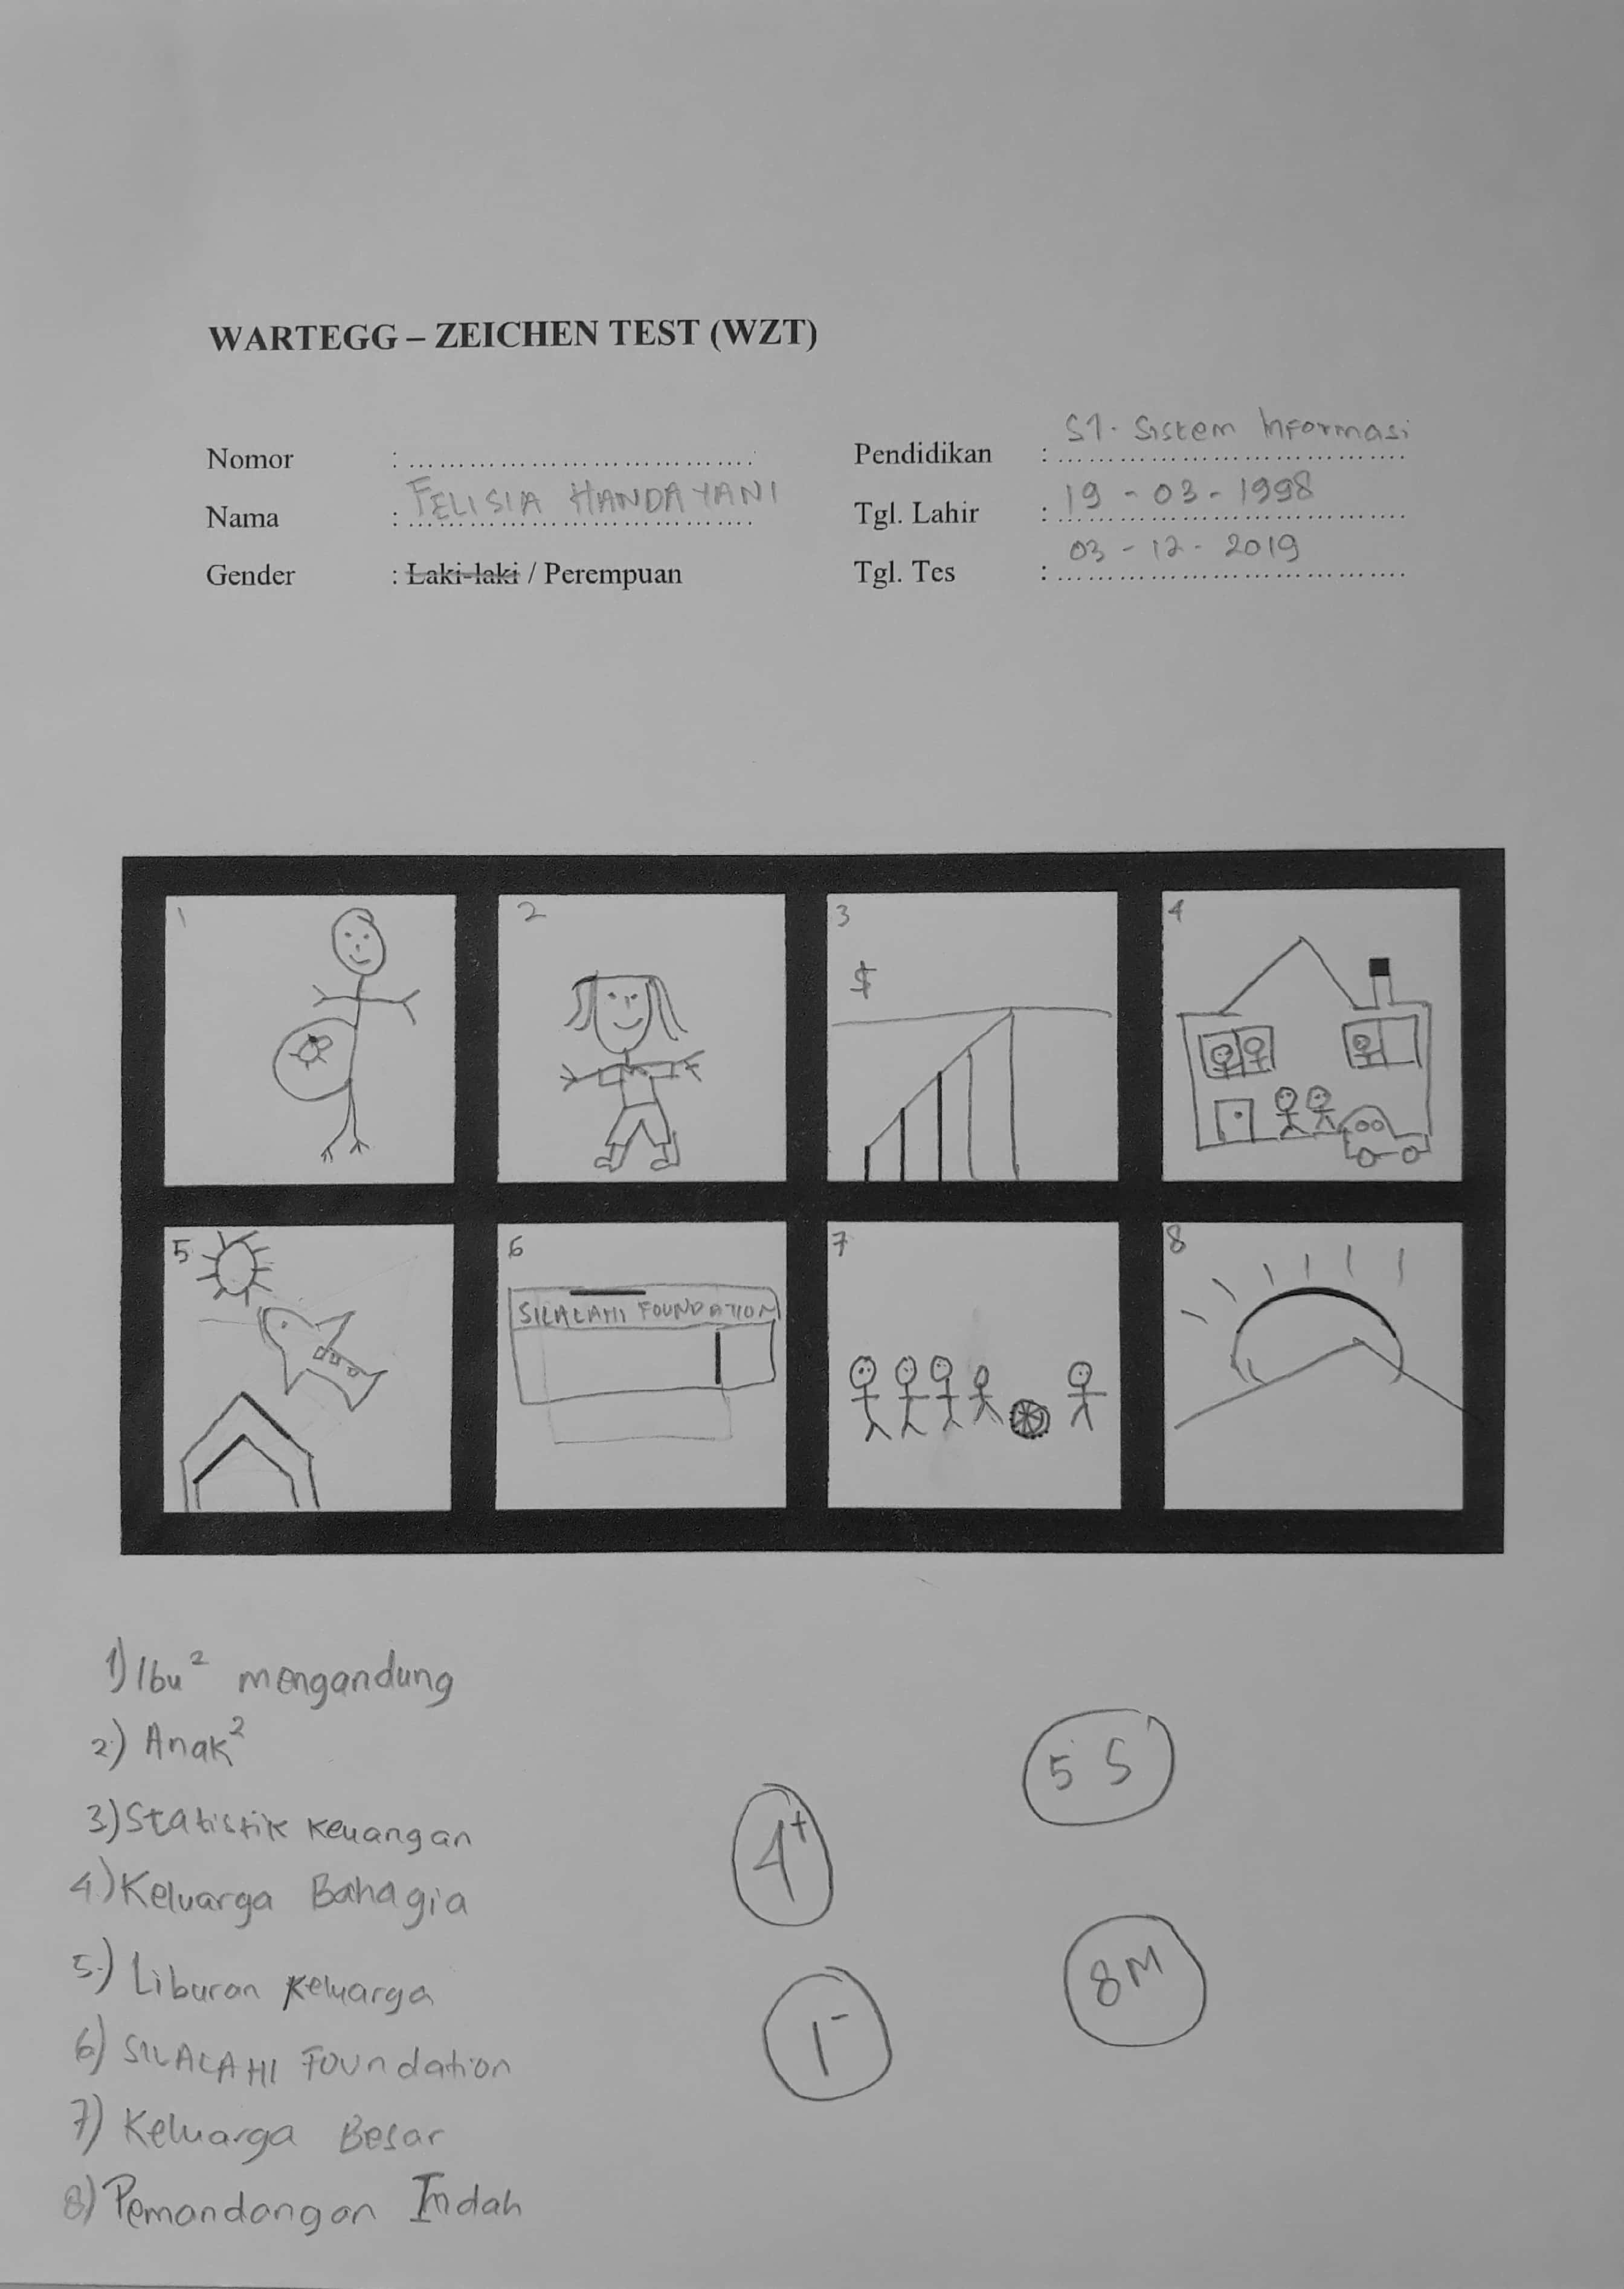 WARTEGG – ZEICHEN TEST (WZT)
Nomor : ....................................
Nama : FELISIA HANDAYANI
Gender : Laki-laki / Perempuan
Pendidikan : S1. Sistem Informasi
Tgl. Lahir : 19 - 03 - 1998
Tgl. Tes : 03 - 12 - 2019
1 2 3 4
$
5 6 7 8
SILALAHI FOUNDATION
1) Ibu² mengandung
2) Anak²
3) Statistik keuangan
4) Keluarga Bahagia
5) Liburan Keluarga
6) SILALAHI Foundation
7) Keluarga Besar
8) Pemandangan Indah
4+
5 S
1-
8M